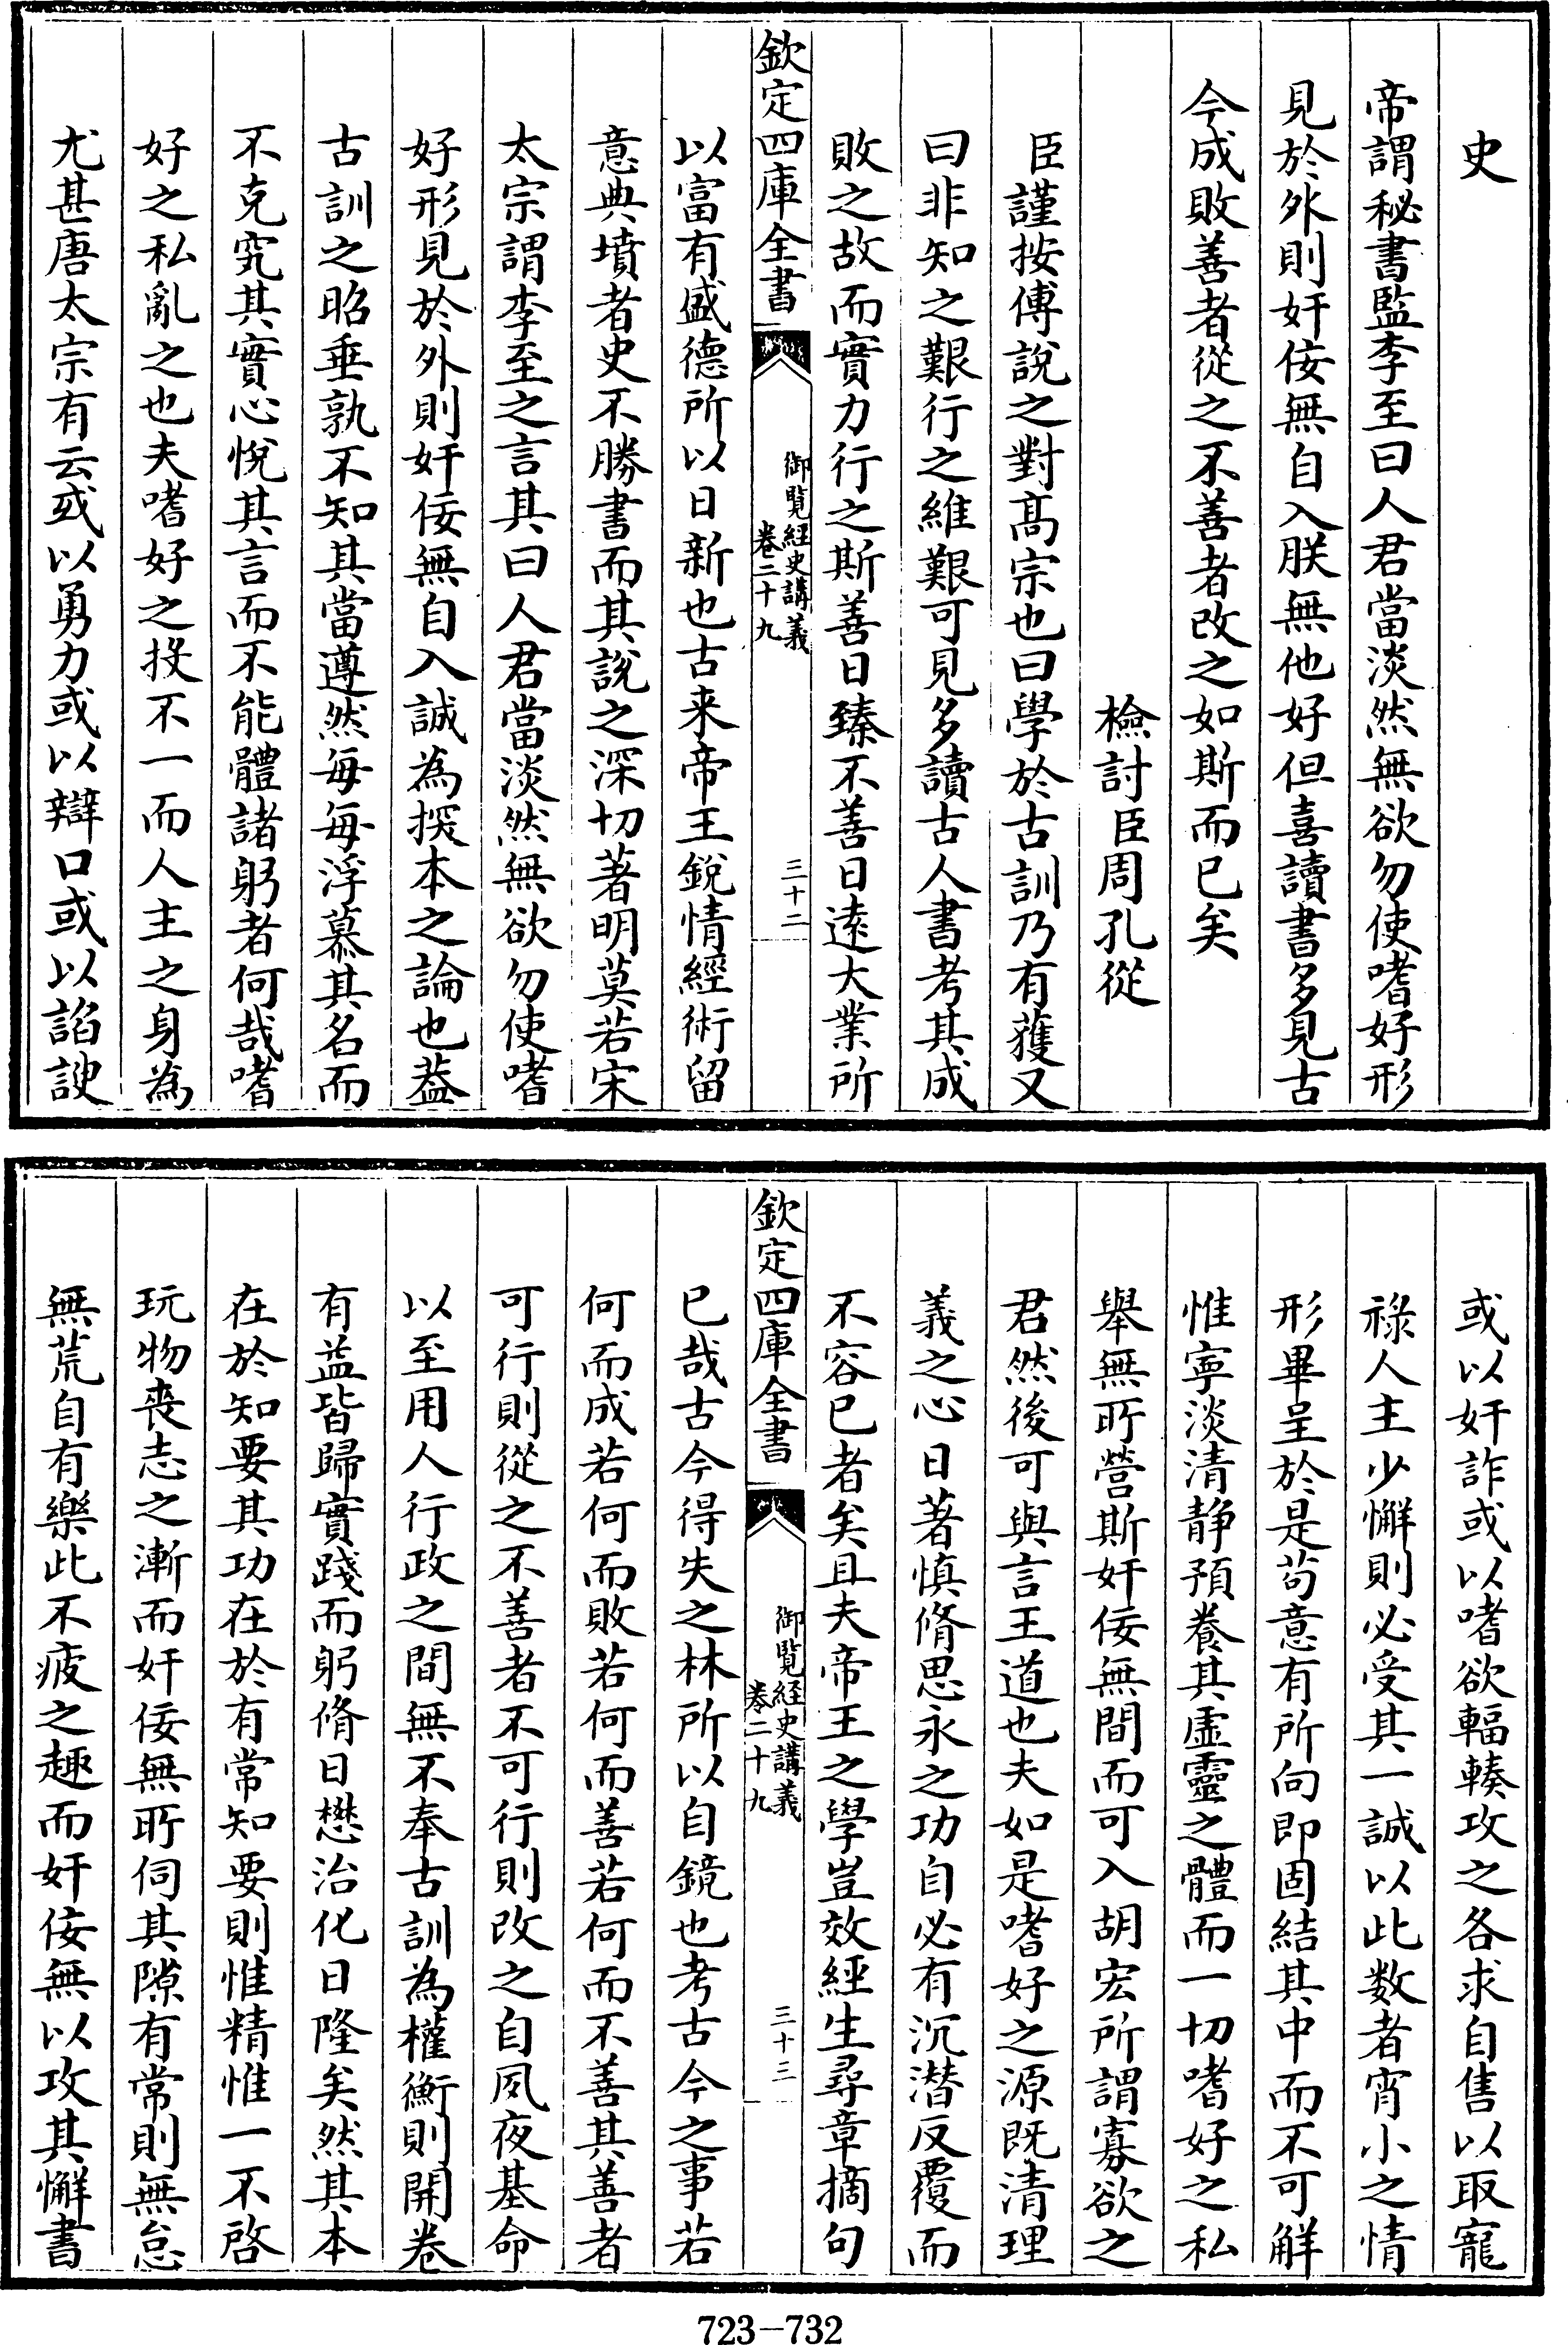 史
帝謂秘書監李至曰人君當淡然無欲勿使嗜好形
見於外則奸佞無自入朕無他好但喜讀書多見古
今成敗善者從之不善者改之如斯而已矣
檢討臣周孔從
臣謹按傅說之對髙宗也曰學於古訓乃有獲又
曰非知之艱行之維艱可見多讀古人書考其成
敗之故而實力行之斯善日臻不善日逺大業所
欽定四庫全書
御覧經史講義
卷二十九
三十二
以富有盛德所以日新也古来帝王銳情經術留
意典墳者史不勝書而其說之深切著明莫若宋
太宗謂李至之言其曰人君當淡然無欲勿使嗜
好形見於外則奸佞無自入誠為探本之論也葢
古訓之昭垂孰不知其當遵然毎毎浮慕其名而
不克究其實心悅其言而不能體諸躬者何哉嗜
好之私亂之也夫嗜好之投不一而人主之身為
尤甚唐太宗有云或以勇力或以辯口或以諂諛
或以奸詐或以嗜欲輻輳攻之各求自售以取寵
祿人主少懈則必受其一誠以此数者宵小之情
形畢呈於是苟意有所向即固結其中而不可解
惟寧淡清静預養其虚靈之體而一切嗜好之私
舉無所營斯奸佞無間而可入胡宏所謂寡欲之
君然後可與言王道也夫如是嗜好之源既清理
義之心日著慎脩思永之功自必有沉潜反覆而
不容已者矣且夫帝王之學豈效經生尋章摘句
欽定四庫全書
御覧經史講義
卷二十九
三十三
已哉古今得失之林所以自鏡也考古今之事若
何而成若何而敗若何而善若何而不善其善者
可行則從之不善者不可行則改之自夙夜基命
以至用人行政之間無不奉古訓為權衡則開卷
有益皆歸實踐而躬脩日懋治化日隆矣然其本
在於知要其功在於有常知要則惟精惟一不啓
玩物喪志之漸而奸佞無所伺其隙有常則無怠
無荒自有樂此不疲之趣而奸佞無以攻其懈書
723-732